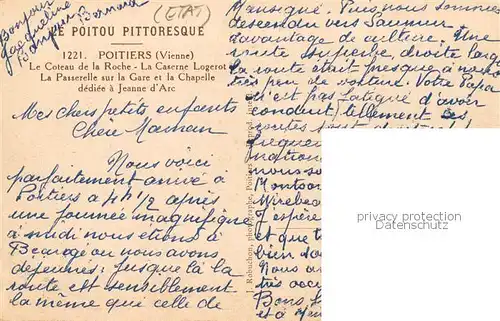 Bonjour
Jacqueline
Bonjour
Bernard
(ETAT)
LE POITOU PITTORESQUE
1221. POITIERS (Vienne)
Le Coteau de la Roche - La Caserne Logerot
La Passerelle sur la Gare et la Chapelle
dédiée à Jeanne d'Arc
Mes chers petits enfants
Chere Maman
Nous voici
parfaitement arrivé à
Poitiers à 4h 1/2 après
une journée magnifique
à midi nous étions à
où nous avons
déjeuner : jusque là la
route est sensiblement
la même que celle de
J. Robuchon, photographe, Poitiers
Puis nous sommes
descendu vers Saumur
davantage de culture. Une
route superbe droite large
la route était presque à nous
très peu de voiture. Votre Papa
n'est pas fatigué d'avoir
conduit, tellement ces
routes sont
nous
Mirebeau
J'espère
et que
bien
Nous a
très
Bons
et à
privacy protection
Datenschutz